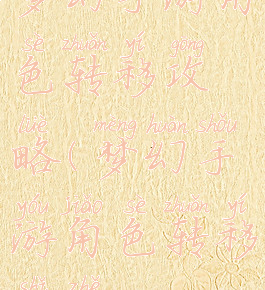 梦幻手游角
sè zhuǎn yí gōng
色转移攻
lüè mèng huàn shǒu
略(梦幻手
yóu jiǎo sè zhuǎn yí
游角色转移
shì zhě